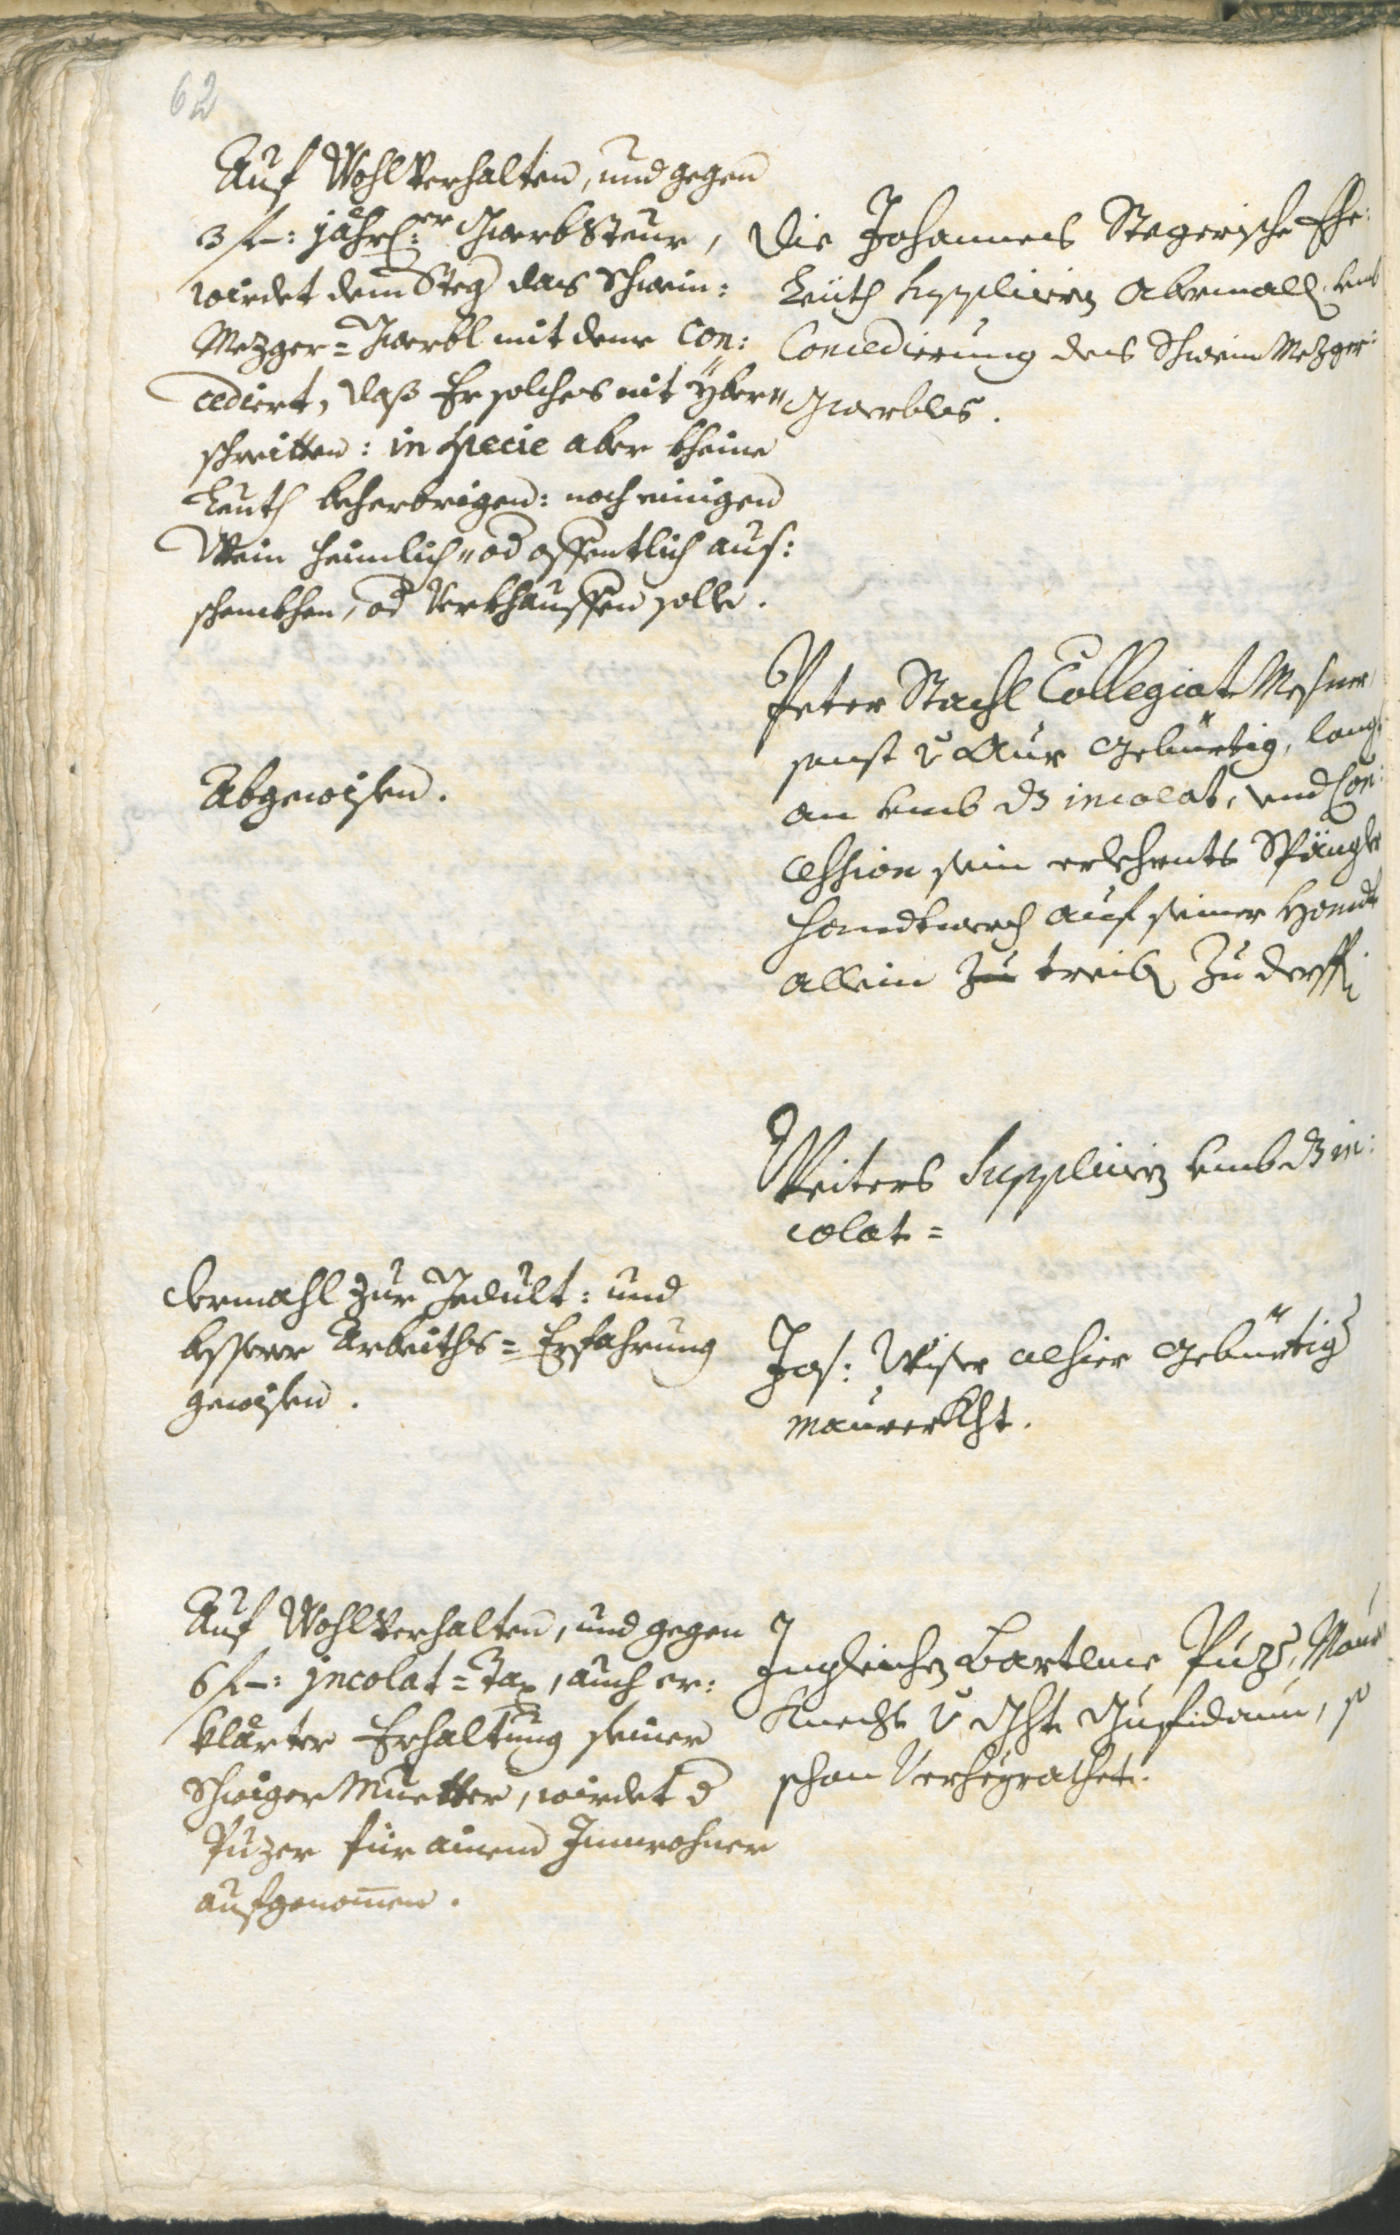 62
Auf Wohlverhalten, und gegen
3 f–: jährl:er Gwerbsteur,
wirdet dem Steg das Schwein:
Mezger=Gwerbl mit deme con:
cediert, daß Er solches nit yber„
schreitten: in specie aber kheine
Leuth beherbrigen: noch einigen
Wein heimlich„ od offentlich aus:
schenkhen, od verkhauffen solle.
Die Johannes Stegerische Ehe:
Leuth supplicirn abermall umb
Concedierung des Schwein Mezger:
Gwerbles.
Abgewisen.
Peter Stachl Collegiat Messner
sonst v Aur gebürtig, langt
an umb dz incolat, und Con:
cession sein erlehrnts Spängler
Handtwerch auf seiner Handt
allein zu treibn zu derffn
Weiters supplicirn umb dz in:
colat=
dermahl zur Gedult: und
besserer Arbeiths=Erfahrung
gewisen.
Jos: Wiser alhier gebürtig
maurerKht.
Auf Wohlverhalten, und gegen
6 f–: jncolat=Tax, auch er:
klärter Erhaltung seiner
Schwiger Muetter, wirdet d
Puzer für ainen Innwohner
aufgenomen.
Ingleichn Bartlme Puzer, Maur
Knecht v Ght Gufidaun, so
schon verheyrathet.